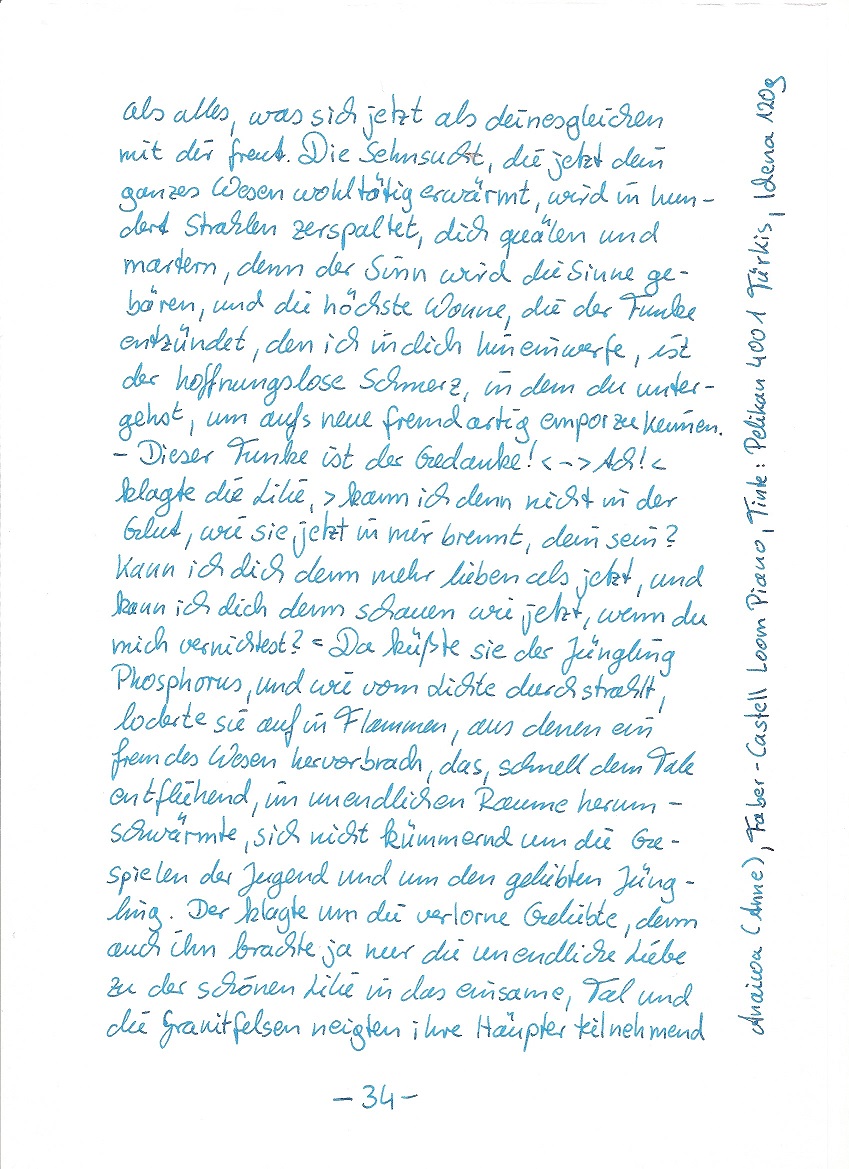 als alles, was sich jetzt als deinesgleichen
mit dir freut. Die Sehnsucht, die jetzt dein
ganzes Wesen wohltätig erwärmt, wird in hun-
dert Strahlen zerspaltet, dich quälen und
martern, denn der Sinn wird die Sinne ge-
bären, und die höchste Wonne, die der Funke
entzündet, den ich in dich hineinwerfe, ist
der hoffnungslose Schmerz, in dem du unter-
gehst, um aufs neue fremdartig emporzukeimen.
- Dieser Funke ist der Gedanke! < - > Ach! <
klagte die Lilie, > kann ich denn nicht in der
Glut, wie sie jetzt in mir brennt, dein sein?
Kann ich dich denn mehr lieben als jetzt, und
kann ich dich denn schauen wie jetzt, wenn du
mich vernichtest? = Da küßte sie der Jüngling
Phosphorus, und wie vom Lichte durchstrahlt,
loderte sie auf in Flammen, aus denen ein
fremdes Wesen hervorbrach, das, schnell dem Tale
entfliehend, im unendlichen Raume herum-
schwärmte, sich nicht kümmernd um die Ge-
spielen der Jugend und um den geliebten Jüng-
ling. Der klagte um die verlorne Geliebte, denn
auch ihn brachte ja nur die unendliche Liebe
zu der schönen Lilie in das einsame, Tal und
die Granitfelsen neigten ihre Häupter teilnehmend
- 34 -
(Anne), Faber-Castell Loom Piano, Tinte: Pelikan 4001 Türkis, Idena 120g